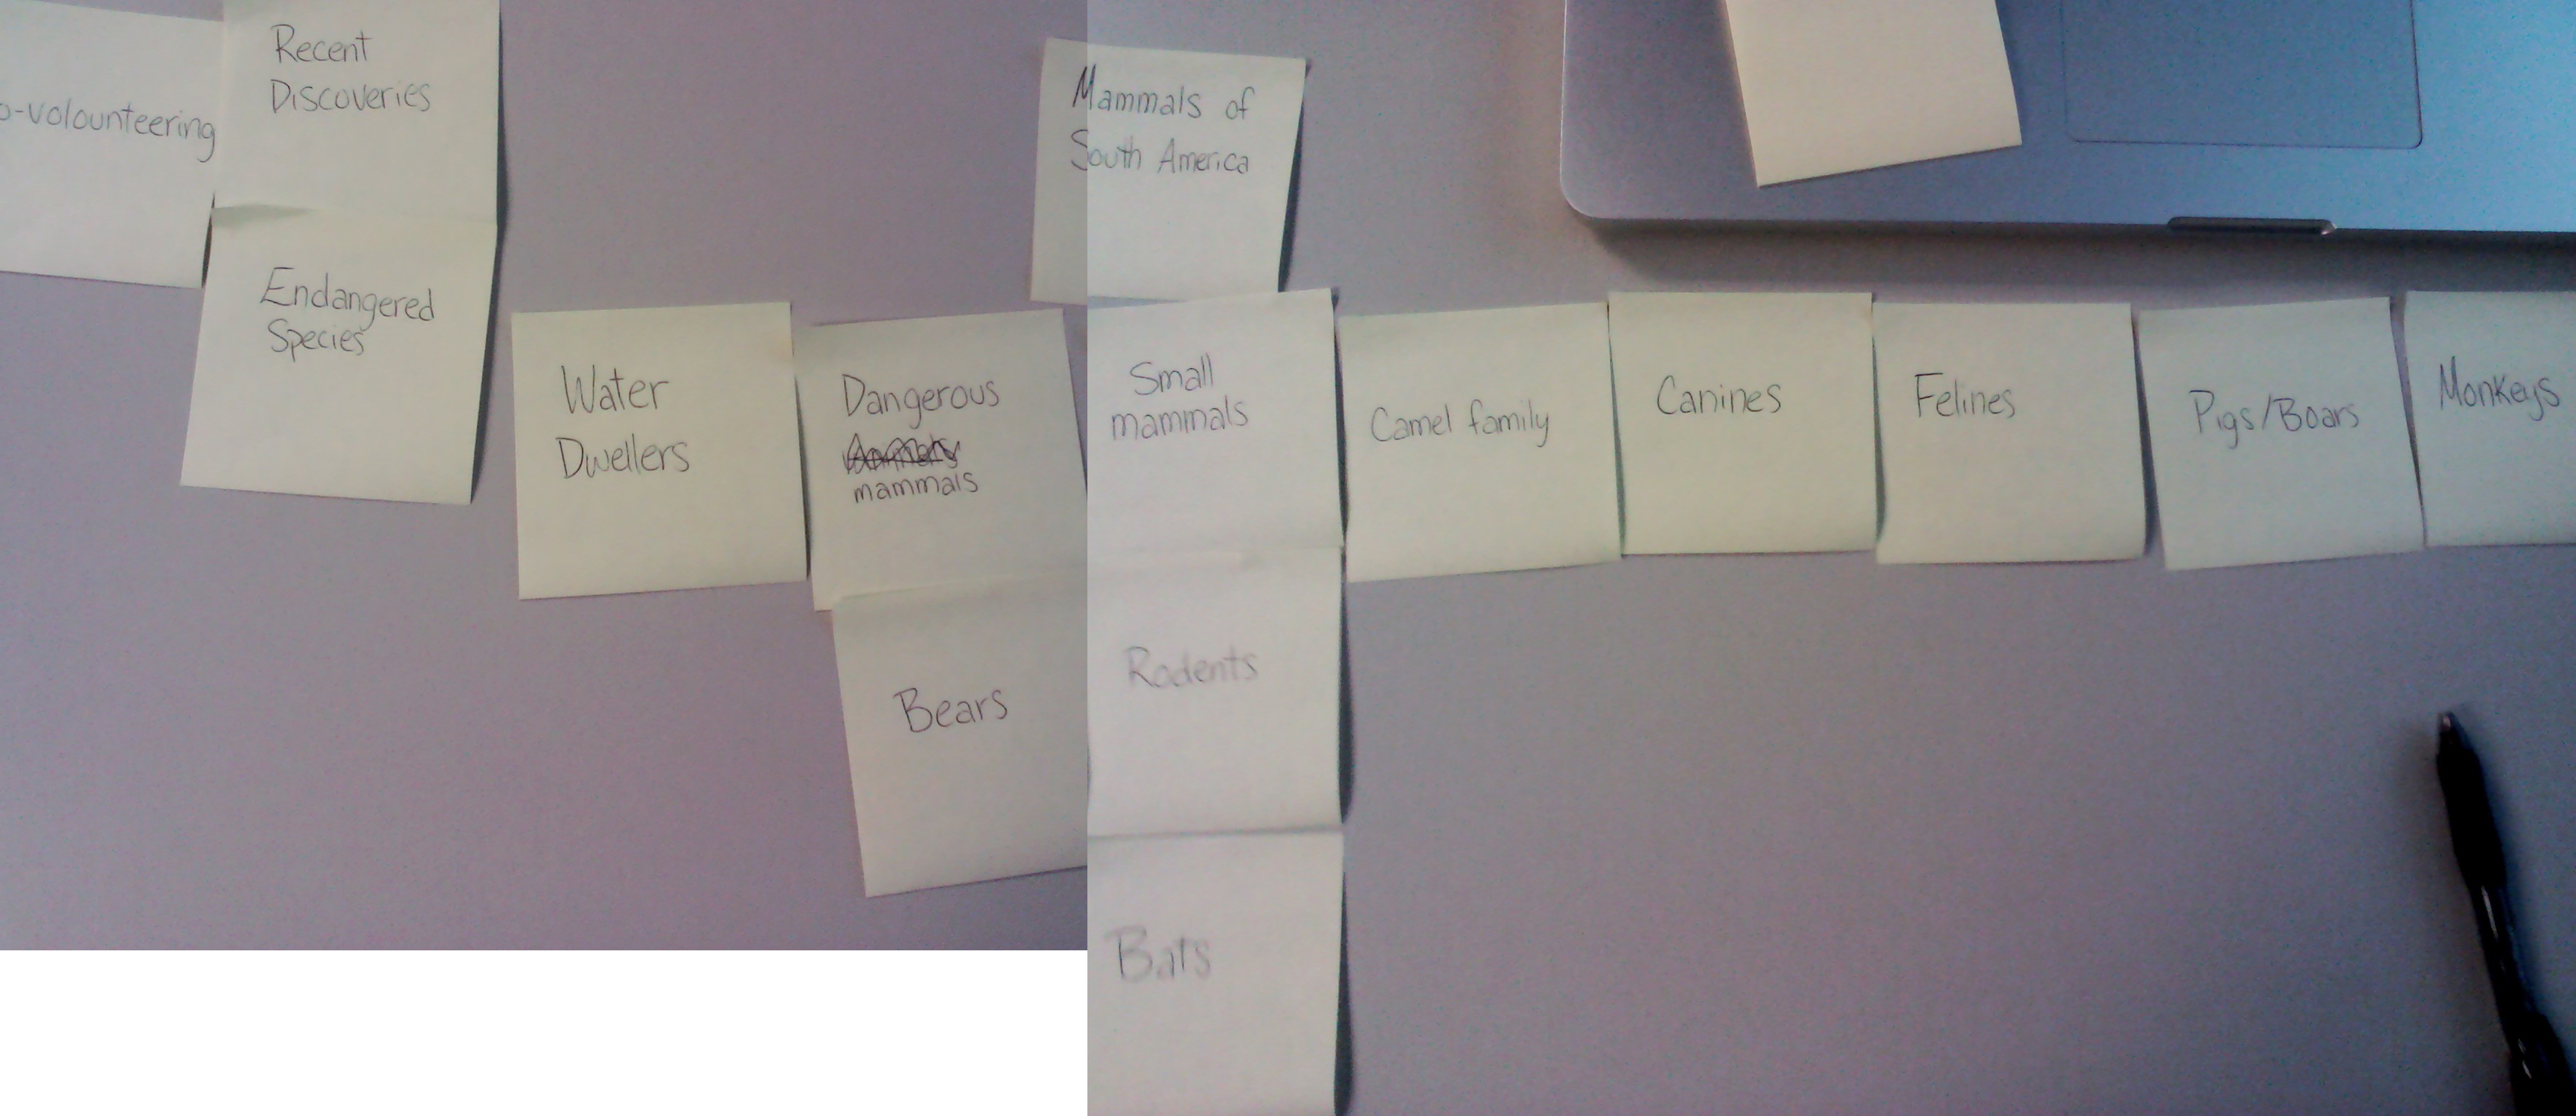 o-volounteering
Recent
Discoveries
Endangered
Species
Mammals of
South America
Water
Dwellers
Dangerous
mammals
Bears
Small
mammals
Rodents
Bats
Camel family
Canines
Felines
Pigs/Boars
Monkeys